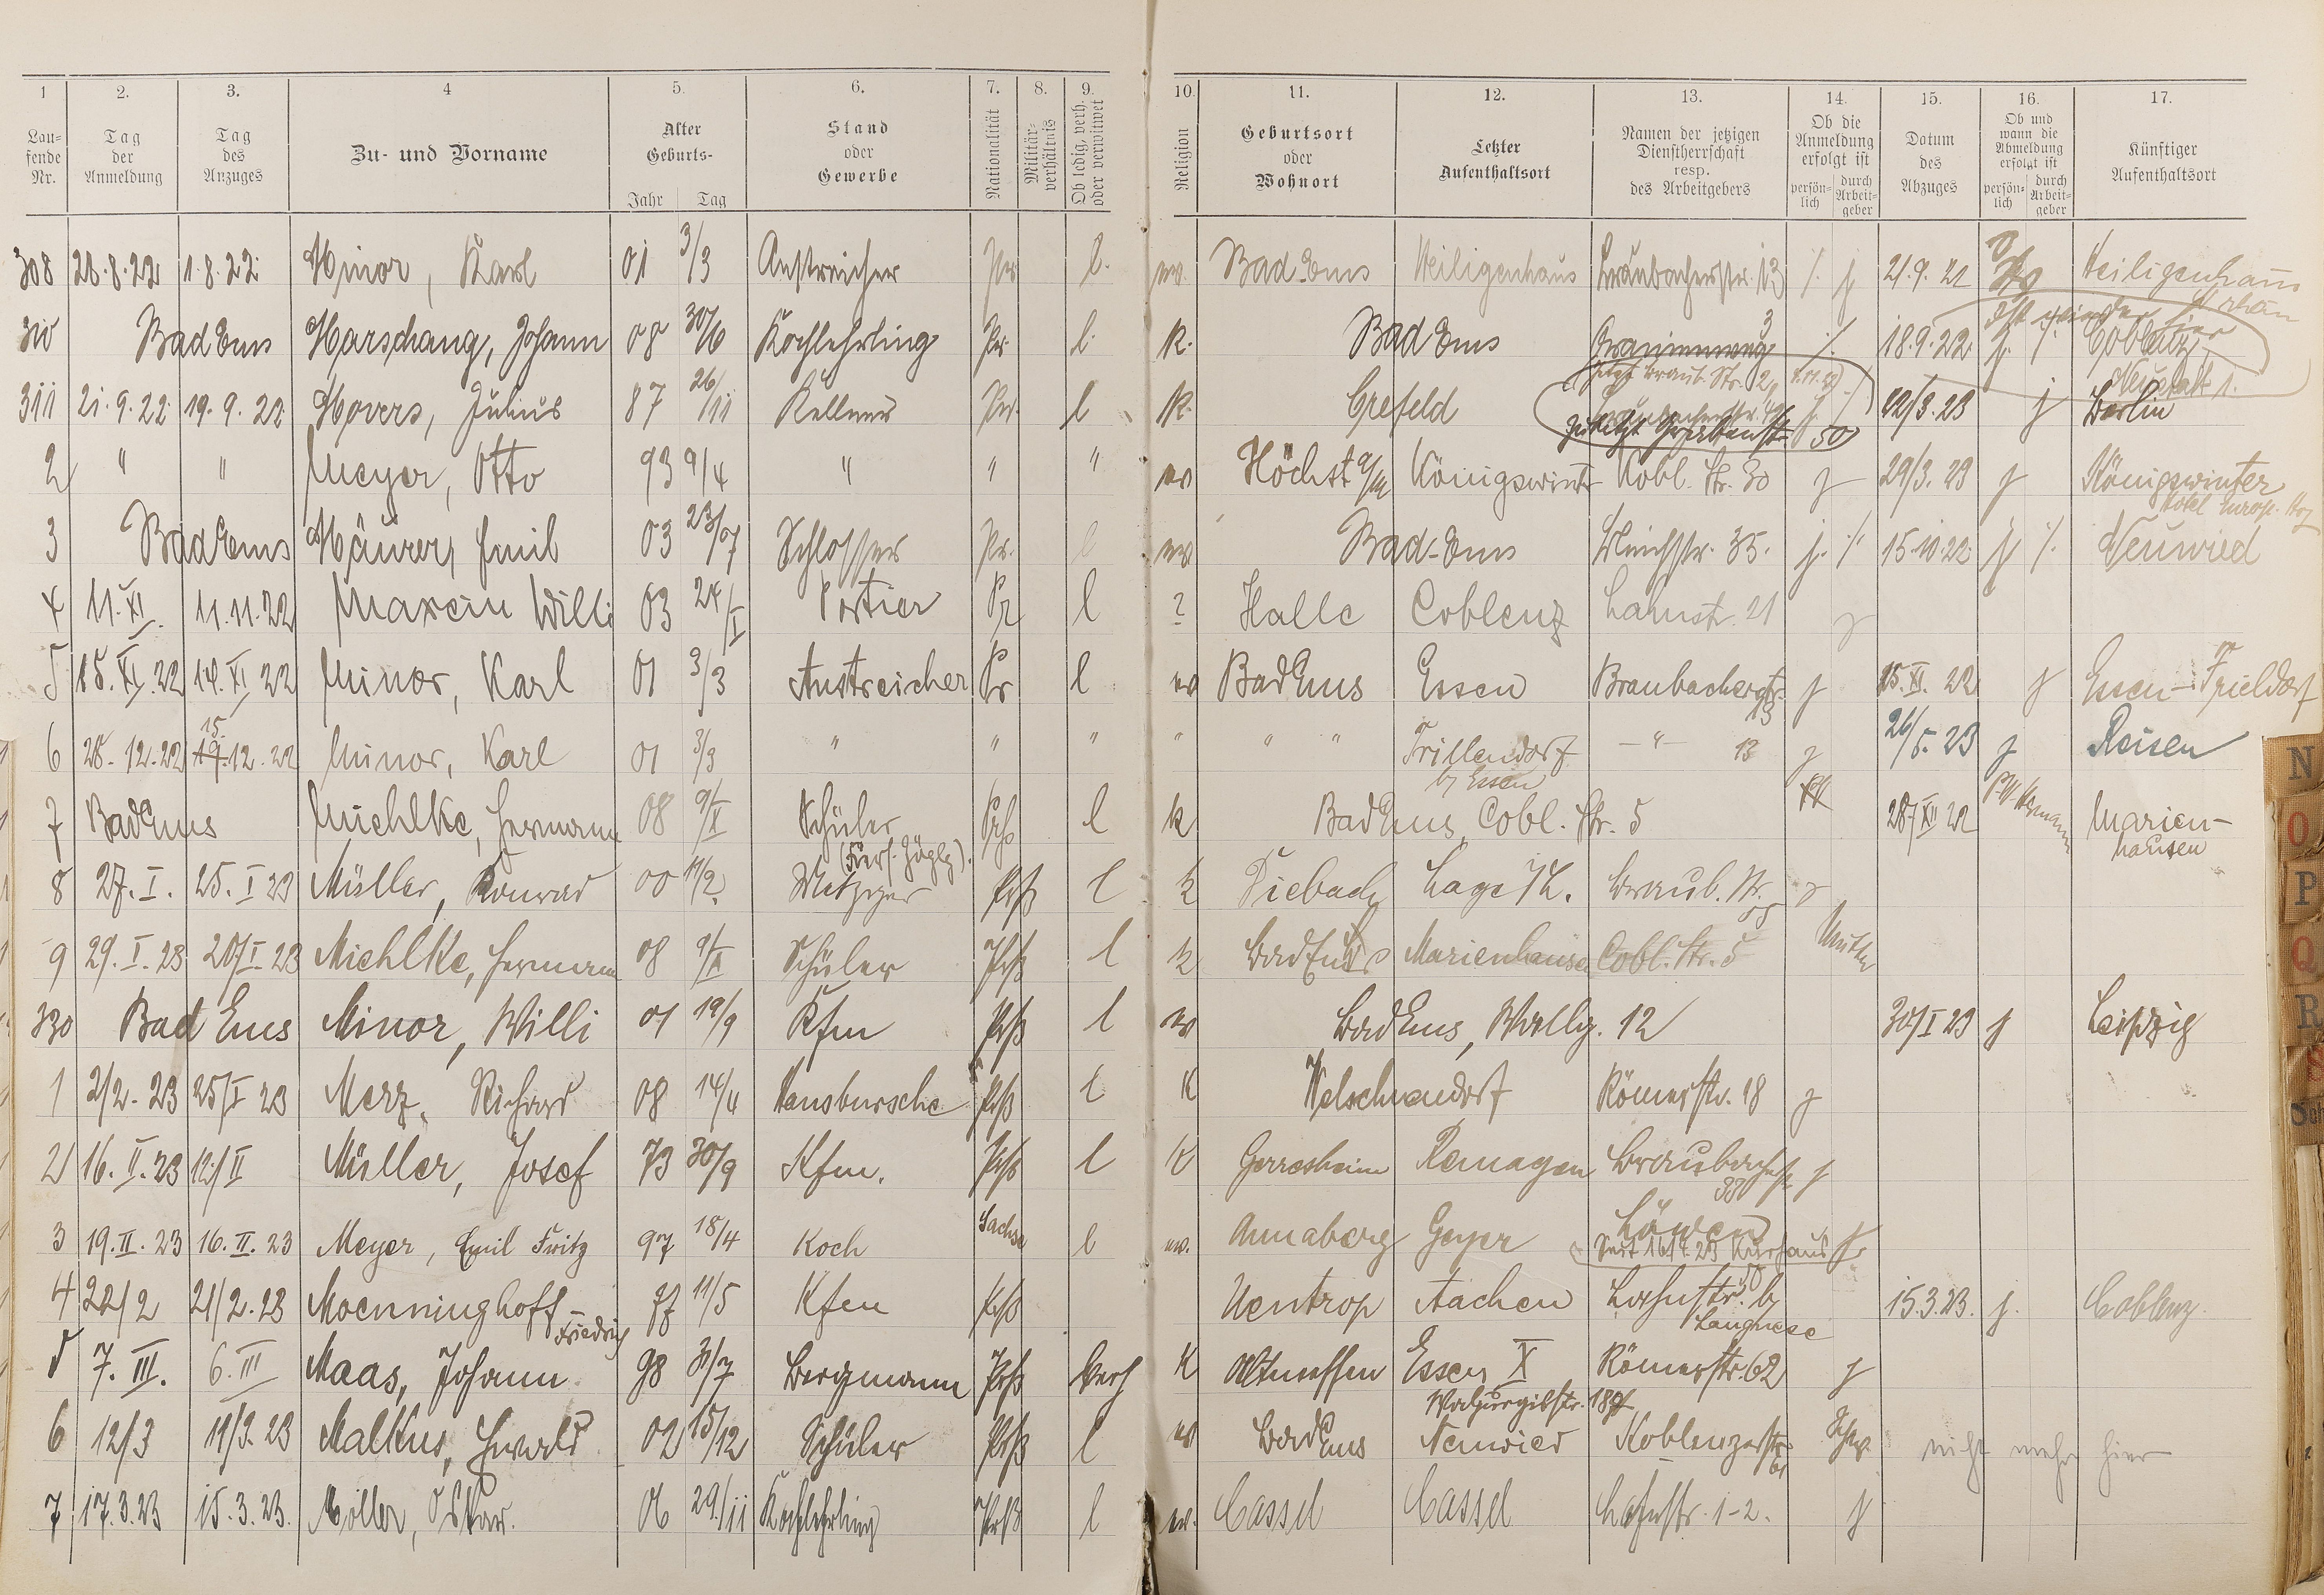 1 2. 3. 4 5. 6. 7. 8. 9. 10. 11. 12. 13. 14. 15. 16. 17.
Lau=fende Nr. Tag der Anmeldung Tag des Anzuges Zu- und Vorname Alter Geburts- Jahr Tag Stand oder Gewerbe Nationalität Militär-verhältnis Ob ledig, verh. oder verwitwet Religion Geburtsort oder Wohnort Letzter Aufenthaltsort Namen der jetzigen Dienstherrschaft resp. des Arbeitgebers Ob die Anmeldung erfolgt ist persön-lich durch Arbeit-geber Datum des Abzuges Ob und wann die Abmeldung erfolgt ist persön-lich durch Arbeit-geber Künftiger Aufenthaltsort
308 28.8.22 1.8.22 Minor, Karl 01 3/3 Anstreicher Pr l. ev. Bad Ems Heiligenhaus Braubacherstr. 13 /. j 21.9.21 Heiligenhaus
310 Bad Ems Marschang, Johann 08 30/6 Kochlehrling Pr. l. K. Bad Ems 3 /. 18.9.22. j. /. Coblenz
Neustadt 1.
jetzt Braub. Str. 2
311 21.9.22 19.9.22 Hovers, Julius 87 26/11 Kellner Pr. l K. Crefeld 12/3.23 j Berlin
50
2 " " Meyer, Otto 93 9/4 " " " ev Höchst a/M Königswinter Kobl. Str. 30 j 29/3.23 j Königswinter
Hotel Europ. Hof
3 Bad Ems Mäurer, Emil 03 23/7 Schlosser Pr. l ev Bad-Ems Bleichstr. 35. j. /. 15.10.22 j /. Neuwied
4 11.XI. 11.11.22 Marxein Willi 03 24/I Portier Pr l ? Halle Coblenz Lahnstr. 21 j
5 15.XI.22 14.XI 22 Minor, Karl 01 3/3 Anstreicher Pr l ev Bad Ems Essen Braubacherstr. 13 j 15.XI.22 j Essen-Frieldorf
6 28.12.22 15. 19.12.22 Minor, Karl 01 3/3 " " " " " " Frillendorf b/ Essen -"- 13 j 26/5.23 j Reisen
7 Bad Ems Michlke, Hermann 08 9/X Schüler (Fürs. Zöglg). Prß l k Bad Ems, Cobl. Str. 5 28/XII 22 Marien-hausen
8 27.I. 25.I 23 Müller, Konrad 00 11/2. Metzger Prß l k Diebach Lage i/L. Braub. Str. 55 j
9 29.I.23 20/I.23 Michlke, Hermann 08 9/X Schüler Prß l k Bad Ems Marienhausen Cobl. Str. 5 Mutter
330 Bad Ems Minor, Willi 01 19/9 Kfm Prß l ev Bad Ems, Wallg. 12 30/I 23 j Leipzig
1 2/2.23 25/I 23 Merz, Richard 08 14/4 Hausbursche Prß l K Welschneudorf Römerstr. 18 j
2 16.II.23 12/II Müller, Josef 73 30/9 Kfm. Prß l K Gerresheim Remagen Braubacherstr. 38 j
3 19.II.23 16.II.23 Meyer, Emil Fritz 97 18/4 Koch Sachse l ev. Annaberg Geyer Löwen j
Seit 16/4 23 Kurhaus
4 22/2 21/2.23 Moenninghoff- Friedrich 77 11/5 Kfm Prß Uentrop Aachen Lahnstr. 50 b/ Langnese 15.3.23. j. Coblenz.
5 7.III. 6.III Maas, Johann 98 31/7 Bergmann Prß Verh K Altenessen Essen X Römerstr. 62 j
Walpurgisstr.
6 12/3 11/3.23 Malkus, Ewald 02 15/12 Schüler Prß l ev Bad Ems Neuwied Koblenzerstr. nicht mehr hier
7 17.3.23 15.3.23. Möller, Oskar. 06 29/11 Kochlehrling Prß l ev. Cassel Cassel Lahnstr. 1-2. j
N
O
P
Q
R
S